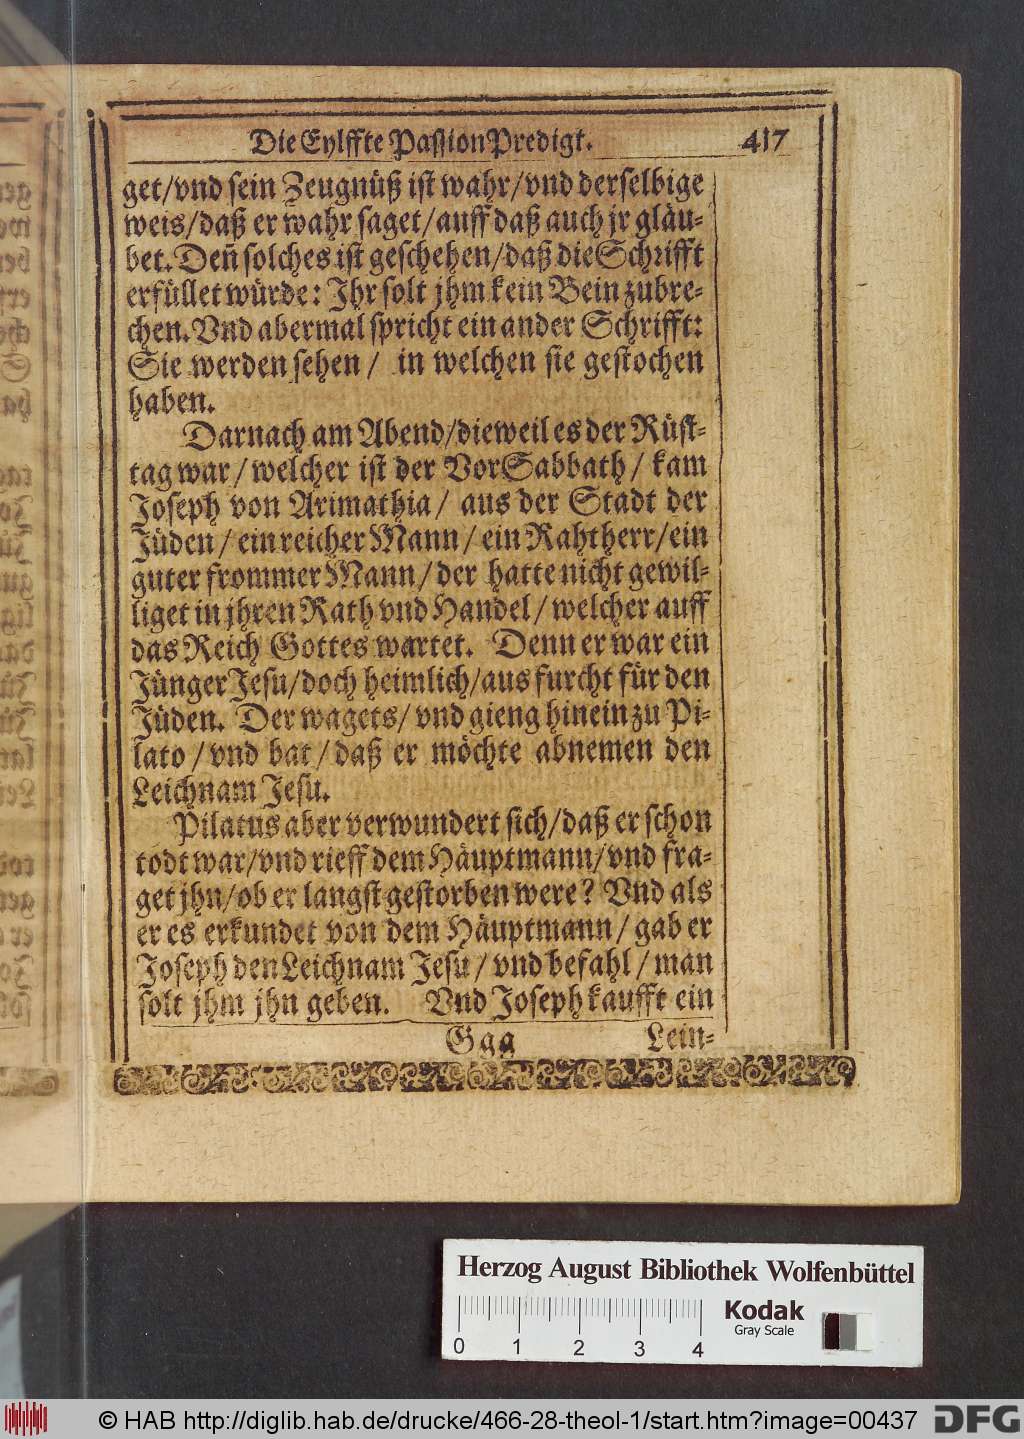 Die Eylffte Passion Predigt. 417
get/vnd sein Zeugnüß ist wahr/vnd derselbige
weis/daß er wahr saget/auff daß auch jr gläu-
bet. Deñ solches ist geschehen/daß die Schrifft
erfüllet würde: Ihr solt jhm kein Bein zubre-
chen. Vnd abermal spricht ein ander Schrifft:
Sie werden sehen / in welchen sie gestochen
haben.
Darnach am Abend/dieweil es der Rüst-
tag war / welcher ist der VorSabbath / kam
Joseph von Arimathia / aus der Stadt der
Jüden / ein reicher Mann / ein Rahtherr/ein
guter frommer Mann / der hatte nicht gewil-
liget in jhren Rath vnd Handel / welcher auff
das Reich Gottes wartet. Denn er war ein
Jünger Jesu/doch heimlich/aus furcht für den
Jüden. Der wagets/ vnd gieng hinein zu Pi-
lato / vnd bat / daß er möchte abnemen den
Leichnam Jesu.
Pilatus aber verwundert sich/daß er schon
todt war/vnd rieff dem Häuptmann/vnd fra-
get jhn/ob er langst gestorben were? Vnd als
er es erkundet von dem Häuptmann / gab er
Joseph den Leichnam Jesu / vnd befahl / man
solt jhm jhn geben. Vnd Joseph kaufft ein
Ggg Lein-
Herzog August Bibliothek Wolfenbüttel
Kodak
Gray Scale
0 1 2 3 4
© HAB http://diglib.hab.de/drucke/466-28-theol-1/start.htm?image=00437 DFG